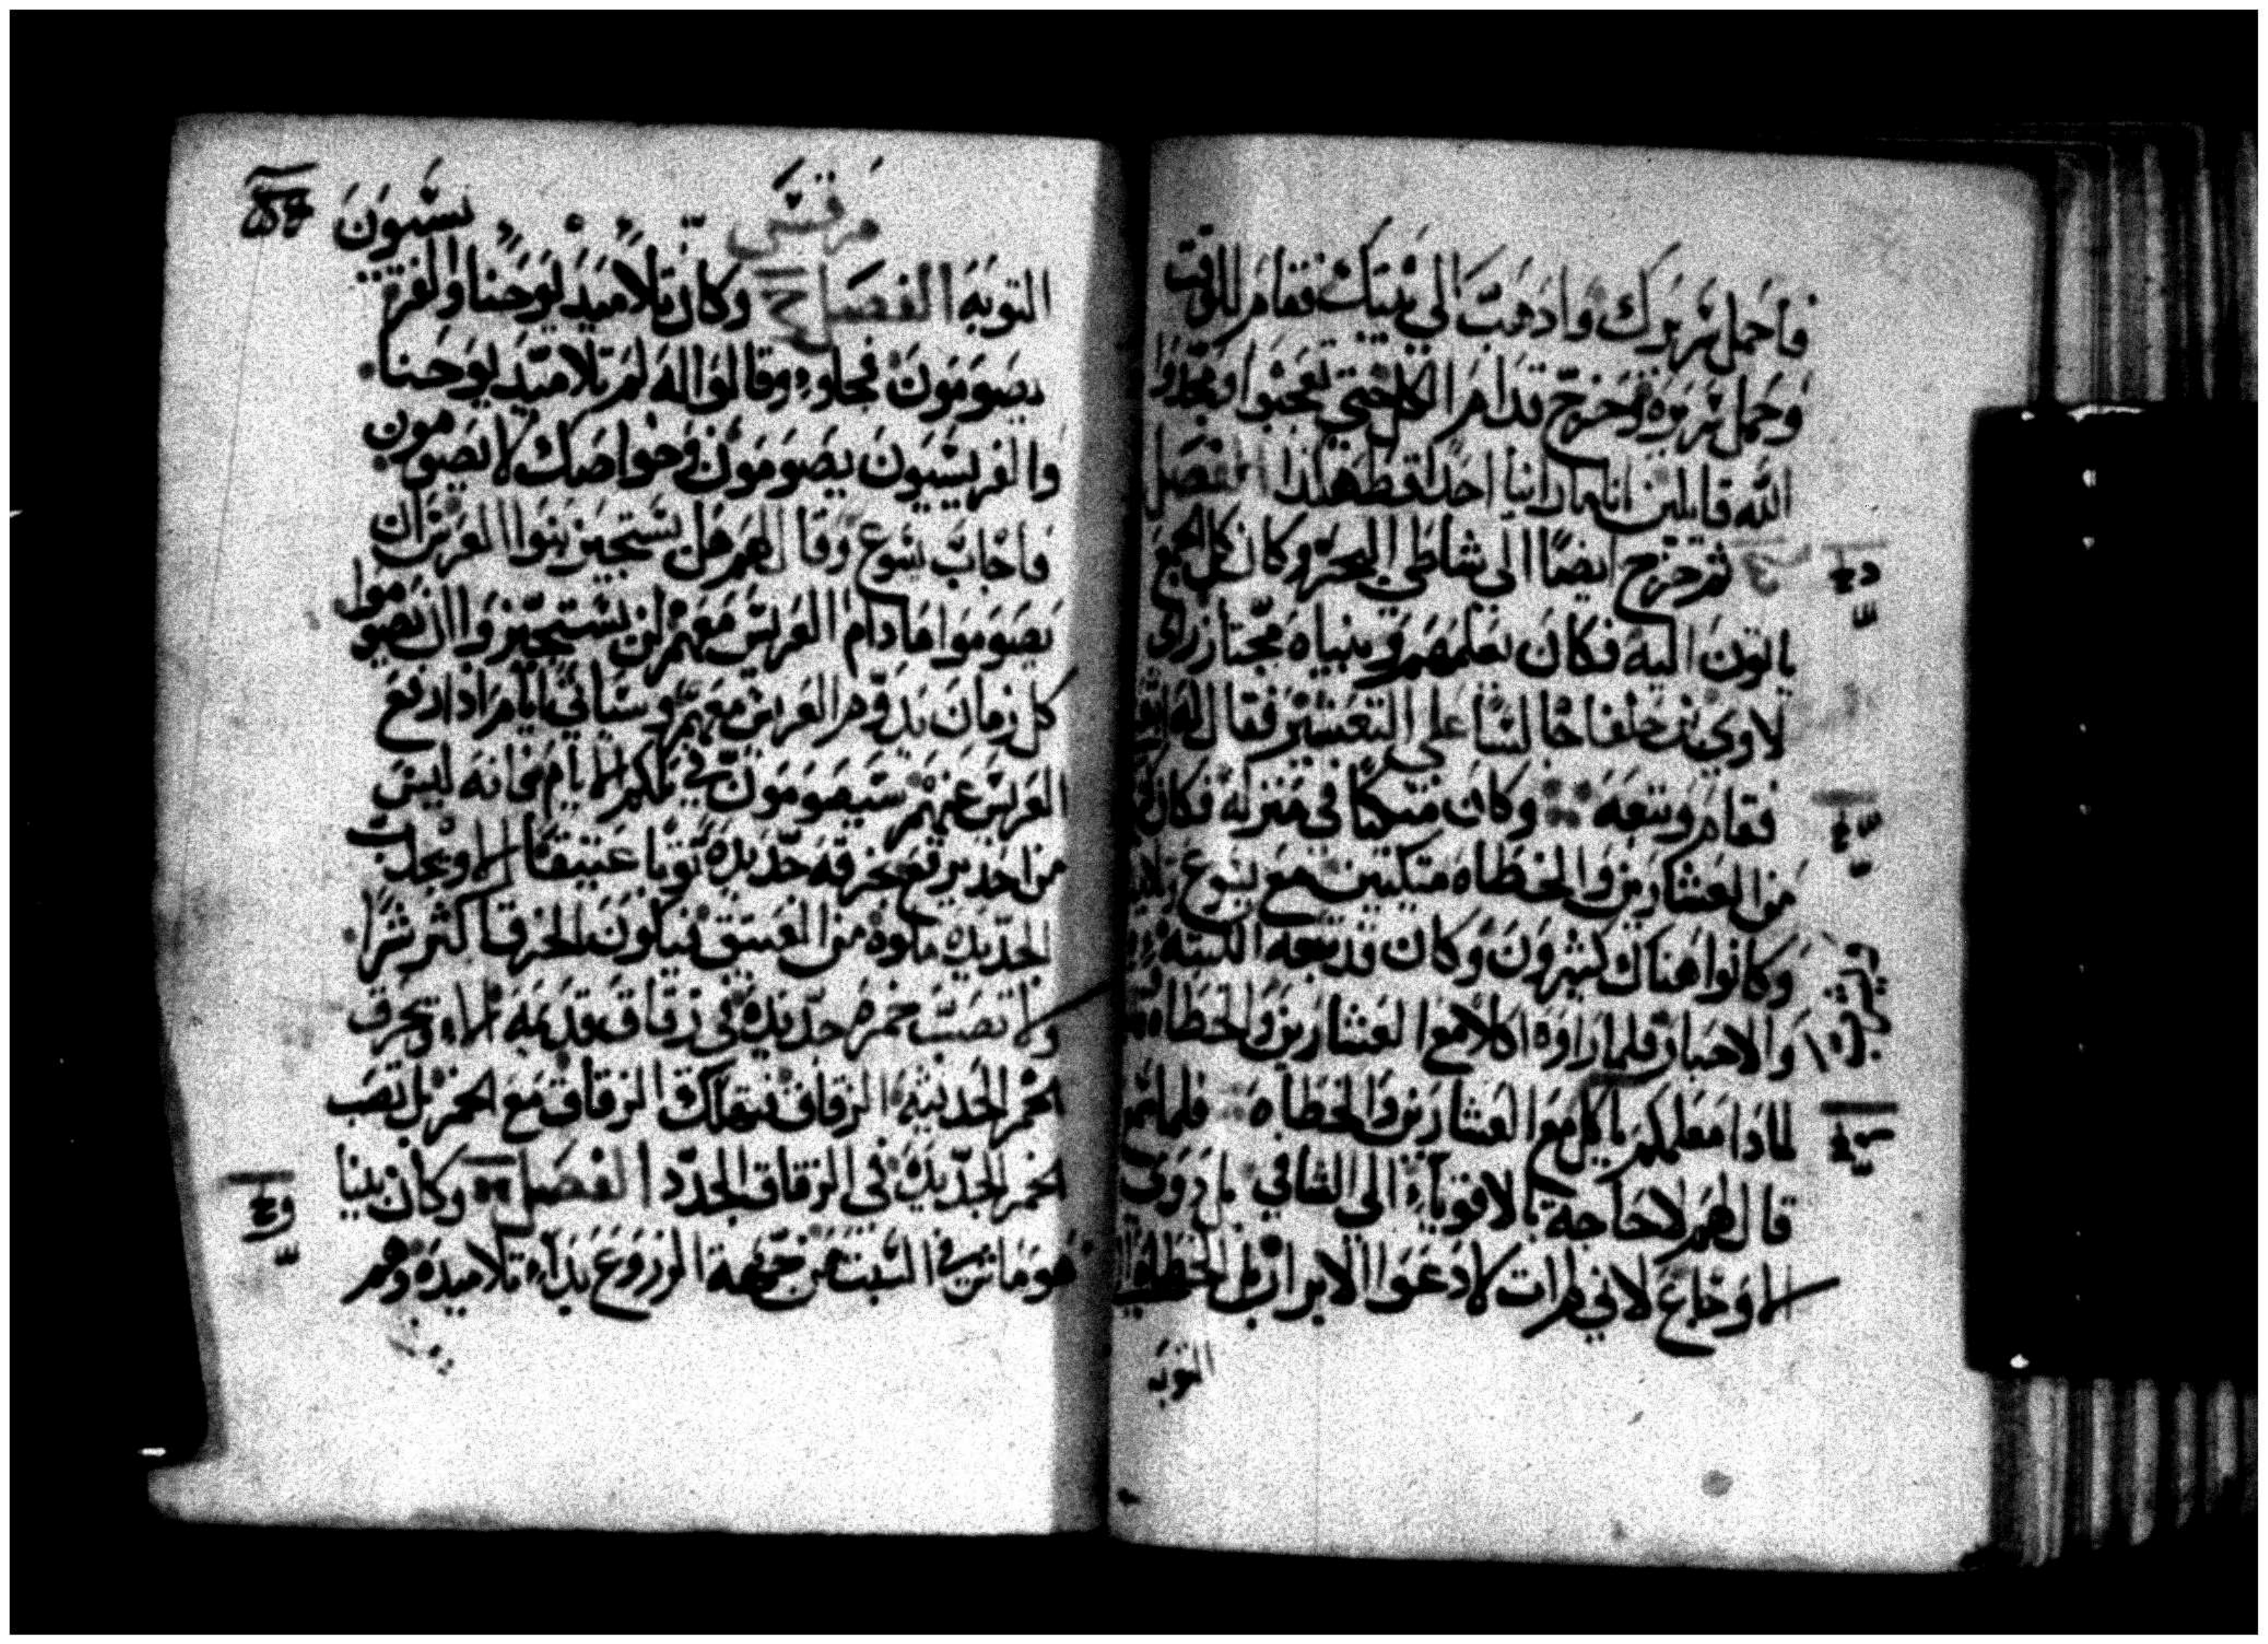 فاحمل سريرك واذهب الي بيتك فقام للوقت
وحمل سريره وخرج قدام الكل حتي تعجبوا ومجدوا
الله قايلين اننا ما راينا احدا قط هكذا الفصل
ثم خرج ايضا الي شاطي البحر وكان كل الجمع
ياتون اليه فكان يعلمهم وبيناه مجتاز راي
لاوي بن حلفا جالسا علي التعشير فقال له
فقام وتبعه وكان متكيا في منزله فكان
من العشارين والخطاه متكيين مع يسوع
وكانوا هناك كثيرون وكان قد تبعه الكتبه
والاحبار فلما راوه اكلا مع العشارين والخطاه
لمادا معلمكم ياكل مع العشارين والخطاه فلما
قال لهم لا حاجه بالاقويا الي الشافي بل دوي
الاوجاع لاني لم ات لادعوا الابرار بل الخطاه
التوبه
مرقس
يسيون
التوبه الفصل وكان تلاميد يوحنا والفر
يصومون فجاوه وقالوا له لم تلاميد يوحنا
والفريسيون يصومون وخواصك لا يصومون
فاجاب يسوع وقال لهم هل يستجيز بنوا العرس ان
يصوموا مادام العريس معهم لن يستجيزوا ان يصوموا
كل زمان يدوم العريس معهم وستاتي ايام ادا ارتفع
العريس عنهم سيصومون في تلك الايام فانه ليس
من احد يرقع بخرقه جديده ثوبا عتيقا الا ويجدب
الجديده ملوه من العتيق فيكون الخرق اكثر شرا
ولا تصب خمره جديده في زقاق قديمه الا وتحرق
الخمر الحديثه الزقاق فتهلك الزقاق مع الخمر بل تصب
الخمر الجديده في الزقاق الجدد الفصل وكان بينا
هو ماش في السبت من جهه الزروع بدا تلاميده وهم